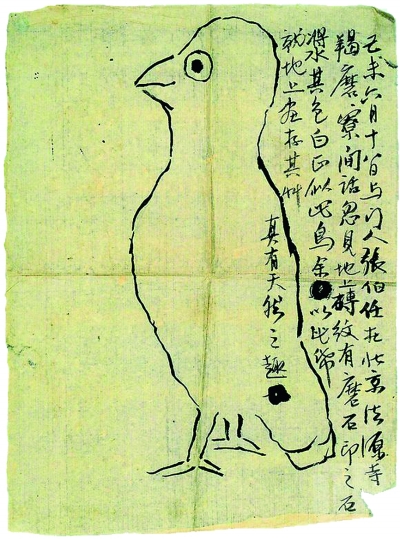 己未六月十八日与门人張伯任在北京法源寺
羯磨寮閒話忽見地上磚紋有磨石印之石
漿其色白正似此鳥余以此紙
就地上畫存其艸
真有天然之趣